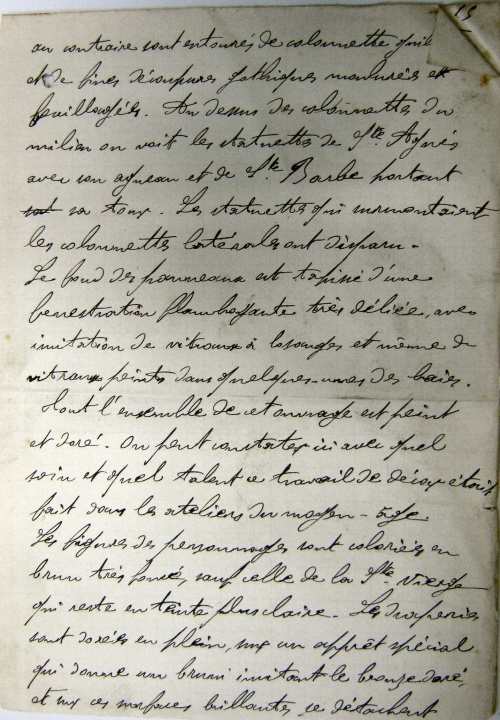 15
au contraire sont entourés de colonnette qui
et de fines découpures gothiques moulurées et
feuillagées. Au dessus des colonnettes du
milieu on voit les statuettes de Ste Agnès
avec son agneau et de Ste Barbe portant
sa tour. Les statuettes qui surmontaient
les colonnettes latérales ont disparu.
Le fond des panneaux est tapissé d'une
fenestration flamboyante très déliée, avec
imitation de vitraux à losanges et même de
vitraux peints dans quelques-unes des baies.
Tout l'ensemble de cet ouvrage est peint
et doré. On peut constater ici avec quel
soin et quel talent ce travail de décor était
fait dans les ateliers du moyen-âge
Les figures des personnages sont coloriées en
brun très foncé, sauf celle de la Ste Vierge
qui reste en teinte plus claire. Les draperies
sont dorées en plein, sur un apprêt spécial
qui donne un bruni imitant le bronze doré,
et sur ces surfaces brillantes se détachent